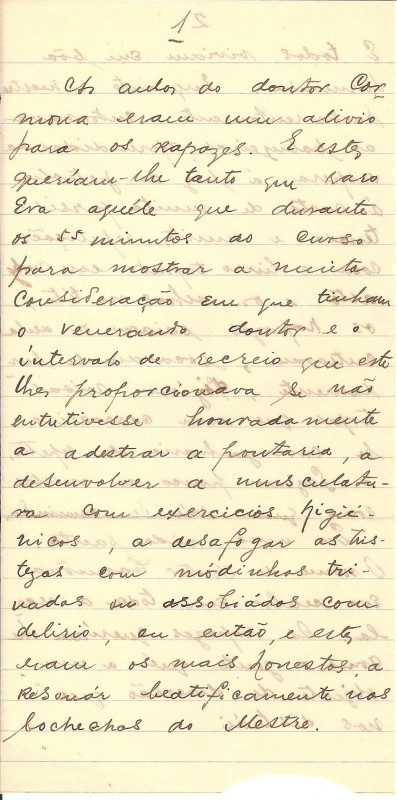 1
As aulas do doutor Cor-
mona eram um alivio
para os rapazes. E estes
queriam-lhe tanto que raro
Era aquêle que durante
os 55 minutos do curso
para mostrar a muita
consideração em que tinham
o venerando doutor e o
intervalo de recreio que este
lhes proporcionava se não
entretivesse honradamente
a adestrar a pontaria, a
desenvolver a musculatu-
ra com exercicios higié-
nicos, a desafogar as tris-
tezas com módinhas tri-
nadas ou assobiádas com
delirio, ou então, e estes
eram os mais honestos, a
resonár beatificamente nas
bochechas do Mestre.